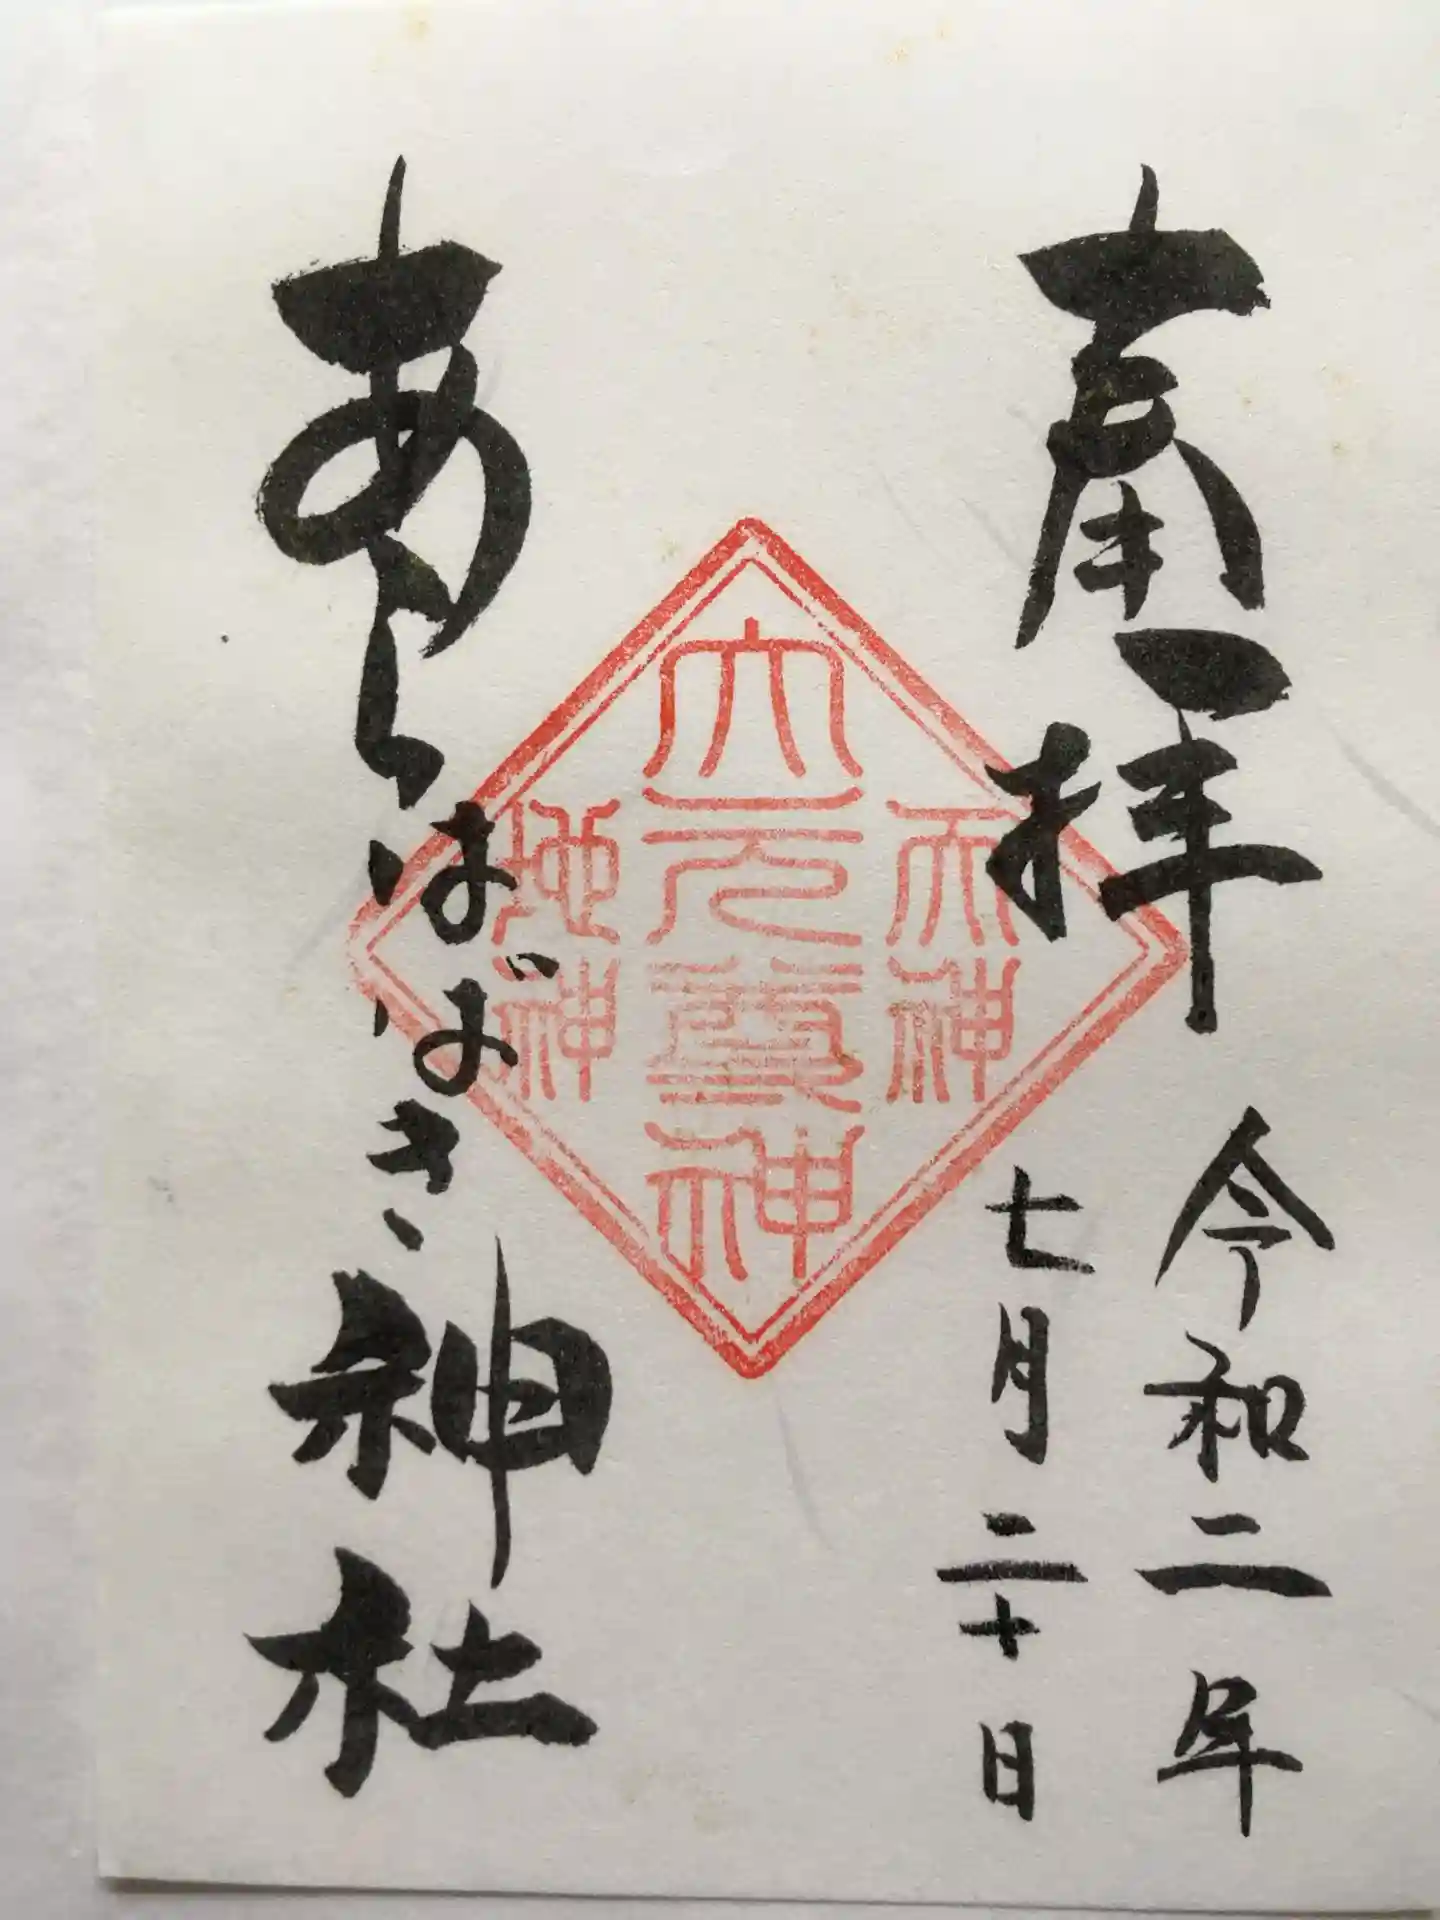 奉拝
令和二年
七月二十日
天神
六一元尊神
地神
あらはばき神社